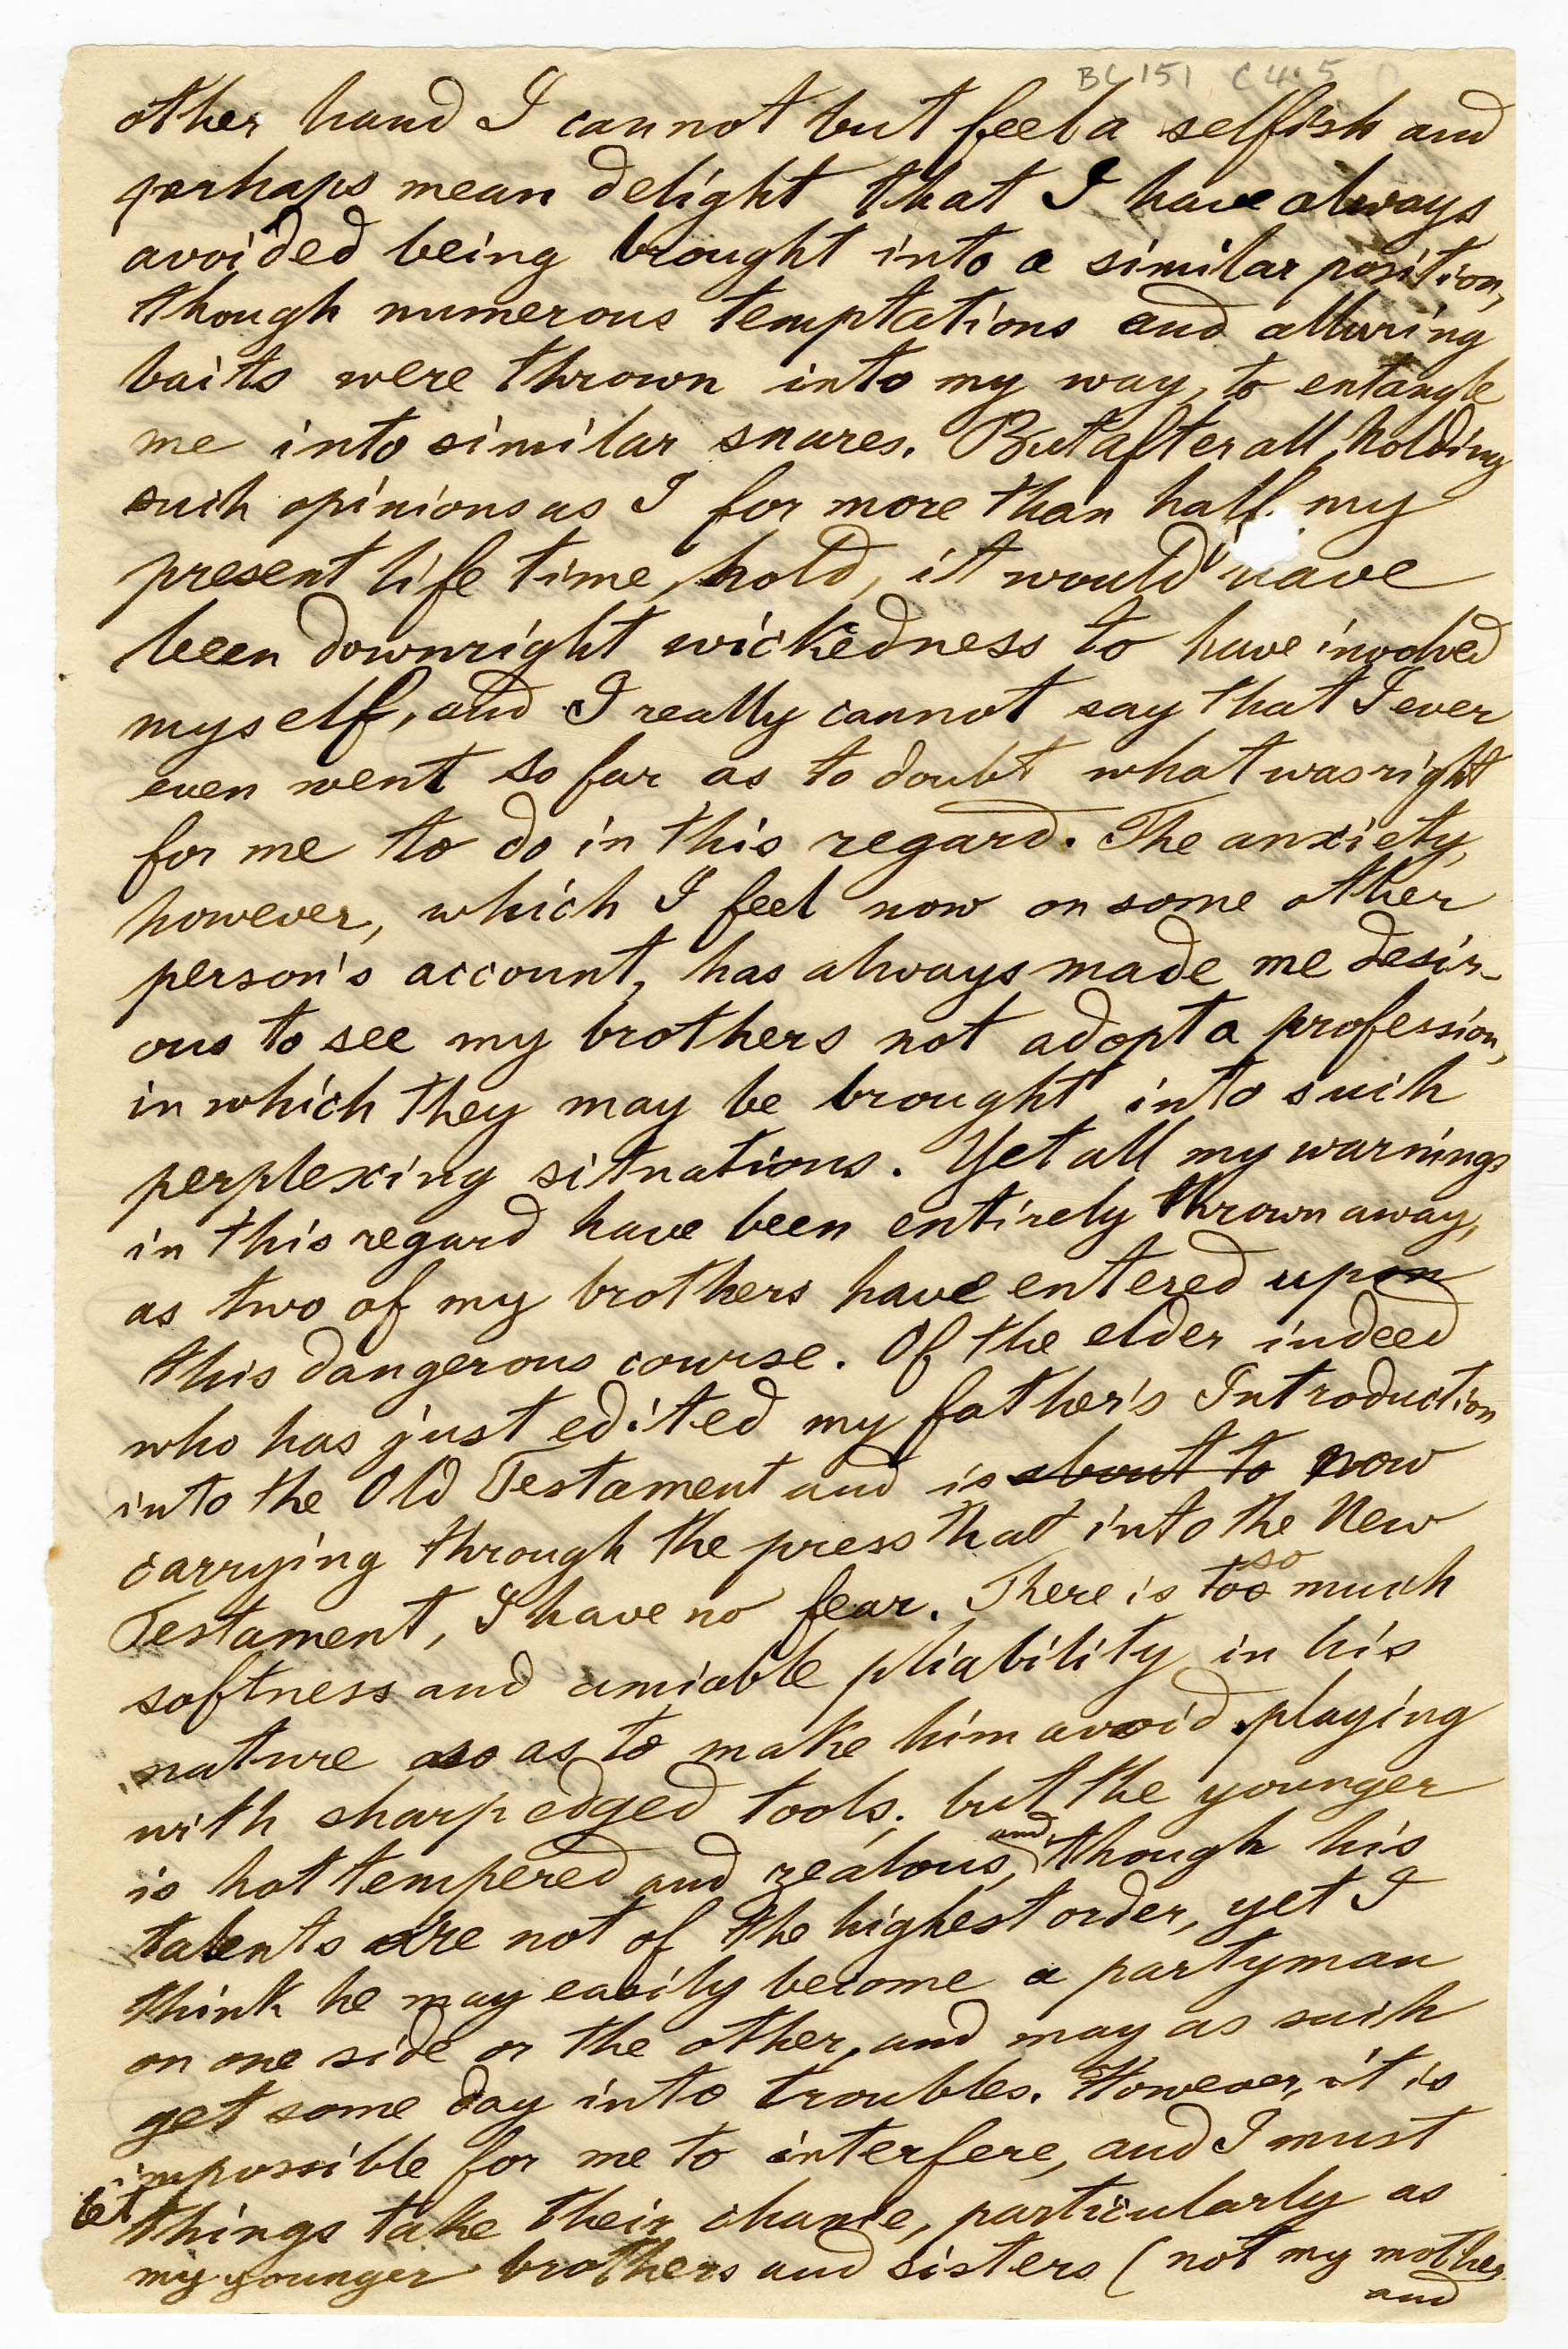 BC 151 C 4.5
other hand I cannot but feel a selfish and
perhaps mean delight that I have always
avoided being brought into a similar position,
though numerous temptations and alluring
baits were thrown into my way, to entangle
me into similar snares. But after all, holding
such opinions as I for more than half my
present life time, hold, it would have
been downright wickedness to have involved
myself, and I really cannot say that I ever
even went so far as to doubt what was right
for me to do in this regard. The anxiety,
however, which I feel now on some other
person's account, has always made me desir-
ous to see my brothers not adopt a profession,
in which they may be brought into such
perplexing situations. Yet all my warnings
in this regard have been entirely thrown away,
as two of my brothers have entered upon
this dangerous course. Of the elder indeed
who has just edited my father's Introduction
into the Old Testament and is about to now
carrying through the press that into the New
so
Testament, I have no fear. There is too much
softness and amiable pliability in his
nature so as to make him avoid playing
with sharp edged tools; but the younger
and
is hot tempered and zealous, though his
talents are not of the highest order, yet I
think he may easily become a partyman
on one side or the other, and may as such
get some day into troubles. However, it is
impossible for me to interfere, and I must
let things take their chance, particularly as
my younger brothers and sisters (not my mother
and